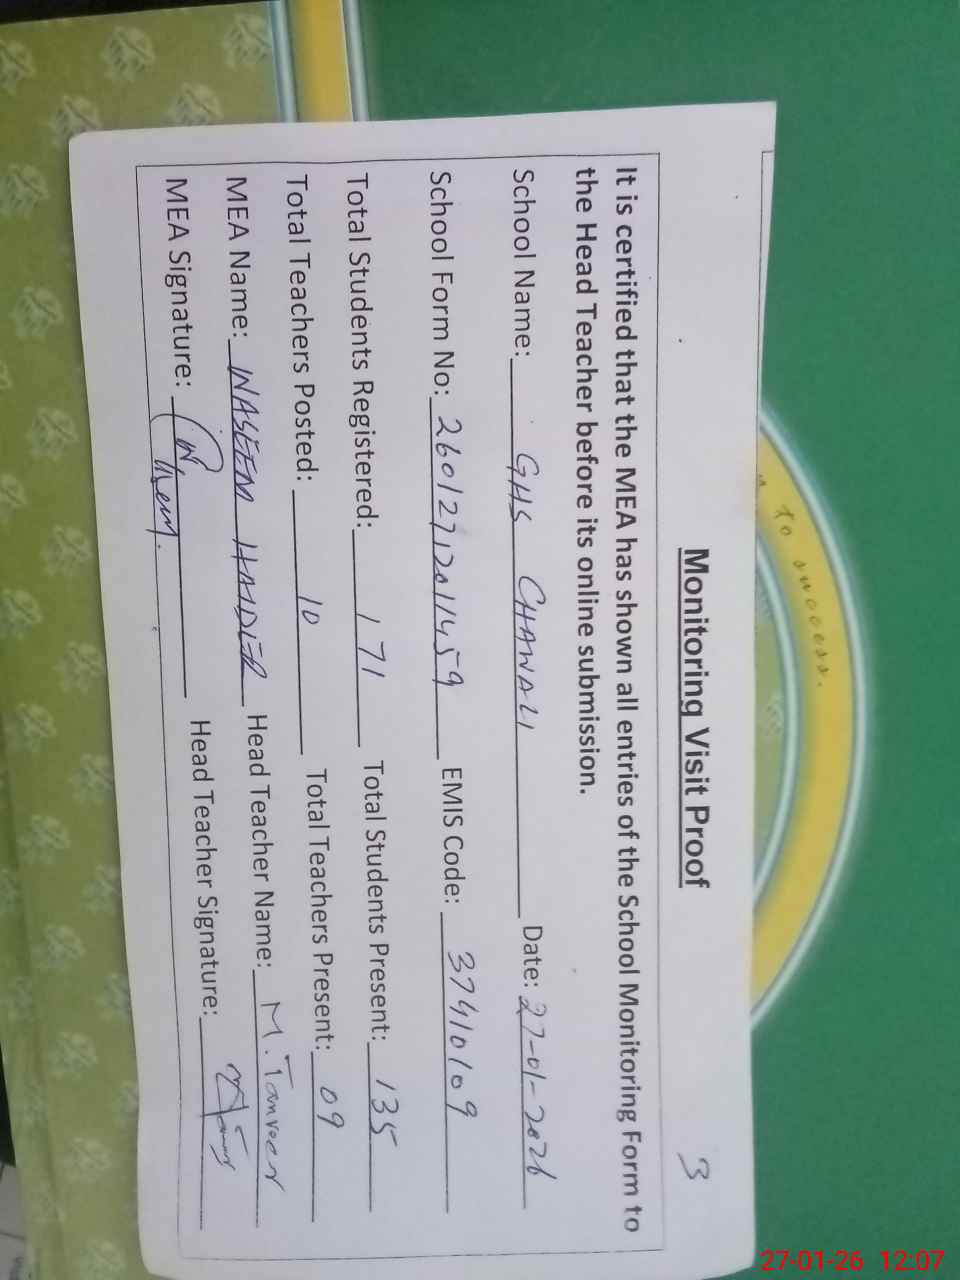 to success.
3
Monitoring Visit Proof
It is certified that the MEA has shown all entries of the School Monitoring Form to
the Head Teacher before its online submission.
School Name: GHS CHAWALI Date: 27-01-2026
School Form No: 26012712011459 EMIS Code: 37410109
Total Students Registered: 171 Total Students Present: 135
Total Teachers Posted: 10 Total Teachers Present: 09
MEA Name: WASEEM HAIDER Head Teacher Name: M. Tanveer
MEA Signature: Head Teacher Signature:
27-01-26 12:07